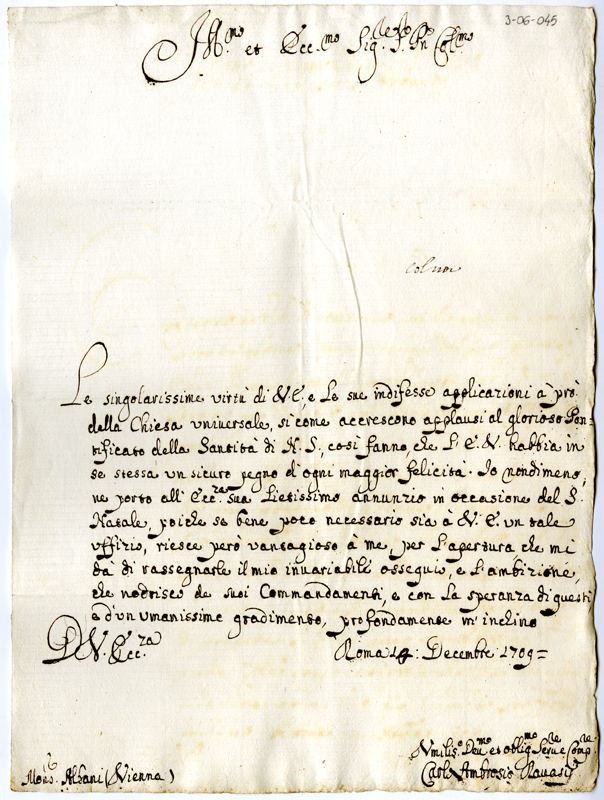 3-06-045
Ill.mo et Ecc.mo Sig.re P.ron Col.mo
Le singolarissime virtù di V.E, e Le sue indifesse applicazioni à prò
della Chiesa universale, si come accrescono applausi al glorioso Pon=
tificato della Santità di N. S., così fanno, che L'E.V. habbia in
se stessa un sicuro pegno d'ogni maggior felicità. Io nondimeno,
ne porto all'Ecc.za sua Lietissimo annunzio in occasione del S.
Natale, poiche se bene poco necessario sia à V.E. un tale
uffizio, riesce però vantagioso à me, per L'apertura che mi
dà di rassegnarle il mio invariabile ossequio, e L'ambizione,
che nodrisco de suoi Commandamenti, e con La speranza di questi
e d'un umanissime gradimento, profondamente m'inchino
D V. Ecc.za
Roma 14: Decembre 1709=
Mons.r Albani (Vienna)
Umilis.o Dev.mo et oblig.mo Serv.e
Carlo Ambrosio